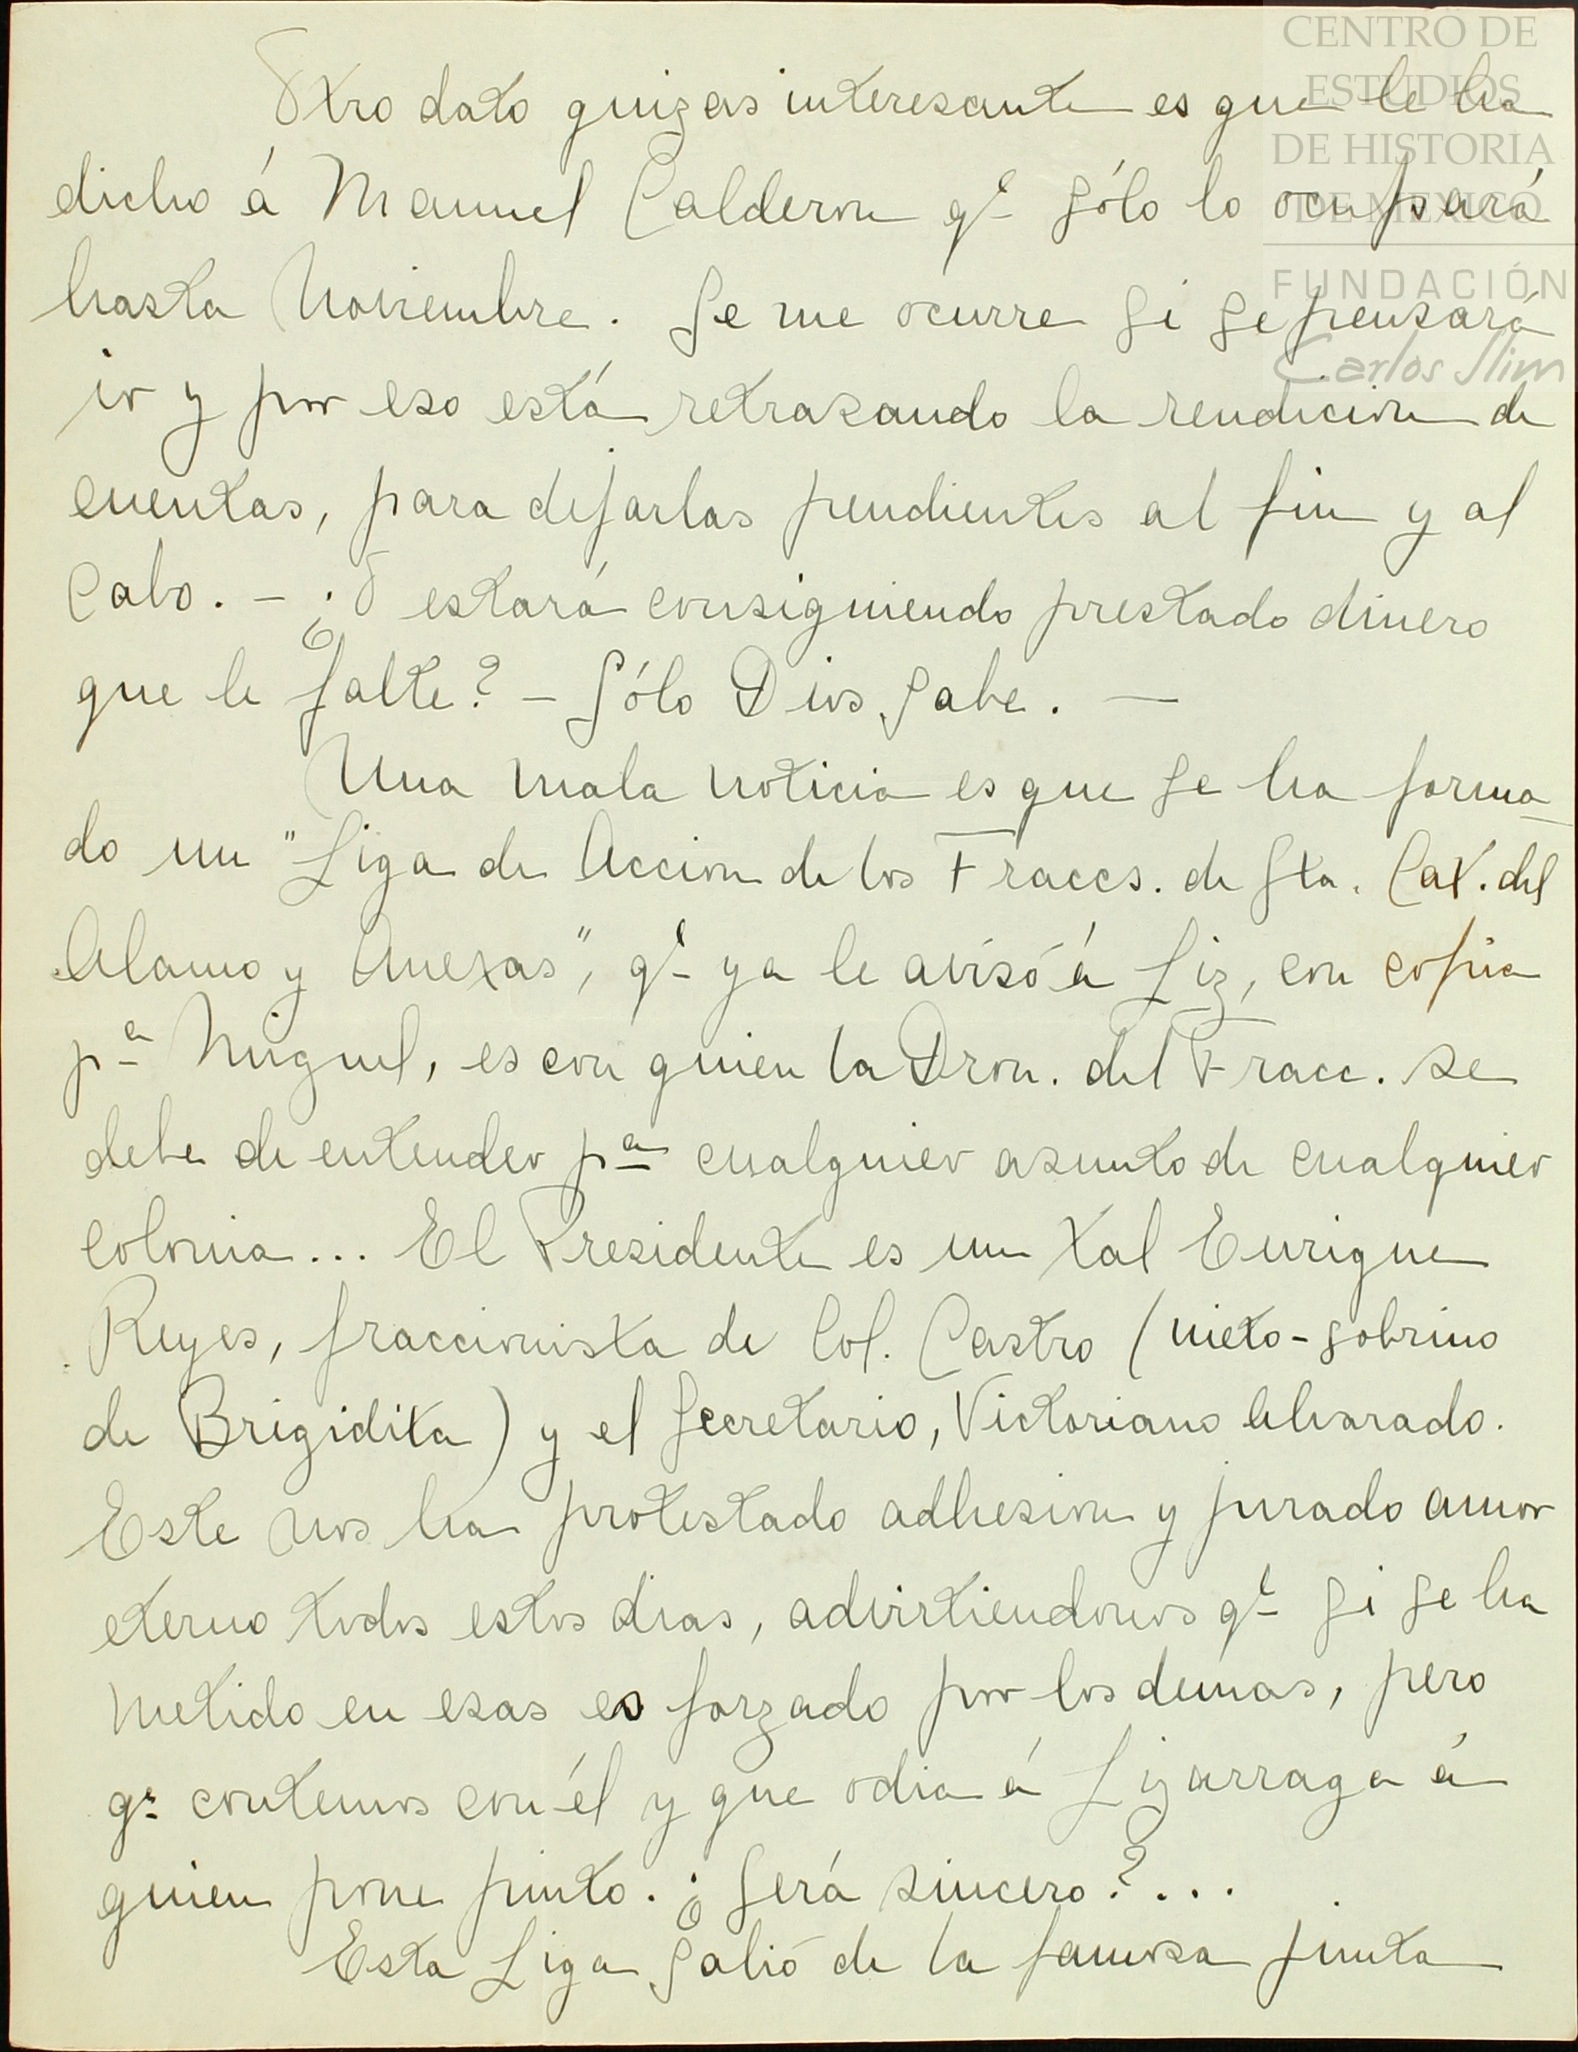 CENTRO DE
ESTUDIOS
DE HISTORIA
DE MEXICO
FUNDACIÓN
Carlos Slim
Otro dato quizas interesante es que le ha
dicho á Manuel Calderon qe sólo lo ocupará
hasta Noviembre. Se me ocurre si se pensará
ir y por eso está retrasando la rendicion de
cuentas, para dejarlas pendientes al fin y al
cabo. - ¿O estará consiguiendo prestado dinero
que le falte? - Sólo Dios sabe. —
Una mala noticia es que se ha forma-
do un "Liga de Accion de los Fraccs. de Sta. Cat. del
Alamo y Anexas", qe ya le avisó á Liz, con copia
pa Miguel, es con quien la Dron. del Fracc. se
debe de entender pa cualquier asunto de cualquier
colonia... El Presidente es un tal Enrique
Reyes, fraccionista de Col. Castro (nieto-sobrino
de Brigidita) y el Secretario, Victoriano Alvarado.
Este nos ha protestado adhesion y jurado amor
eterno todos estos dias, advirtiendonos qe si se ha
metido en esas es forzado por los demas, pero
qe contemos con él y que odia á Lizarraga á
quien pone pinto. ¿Será sincero?...
Esta Liga salió de la famosa junta